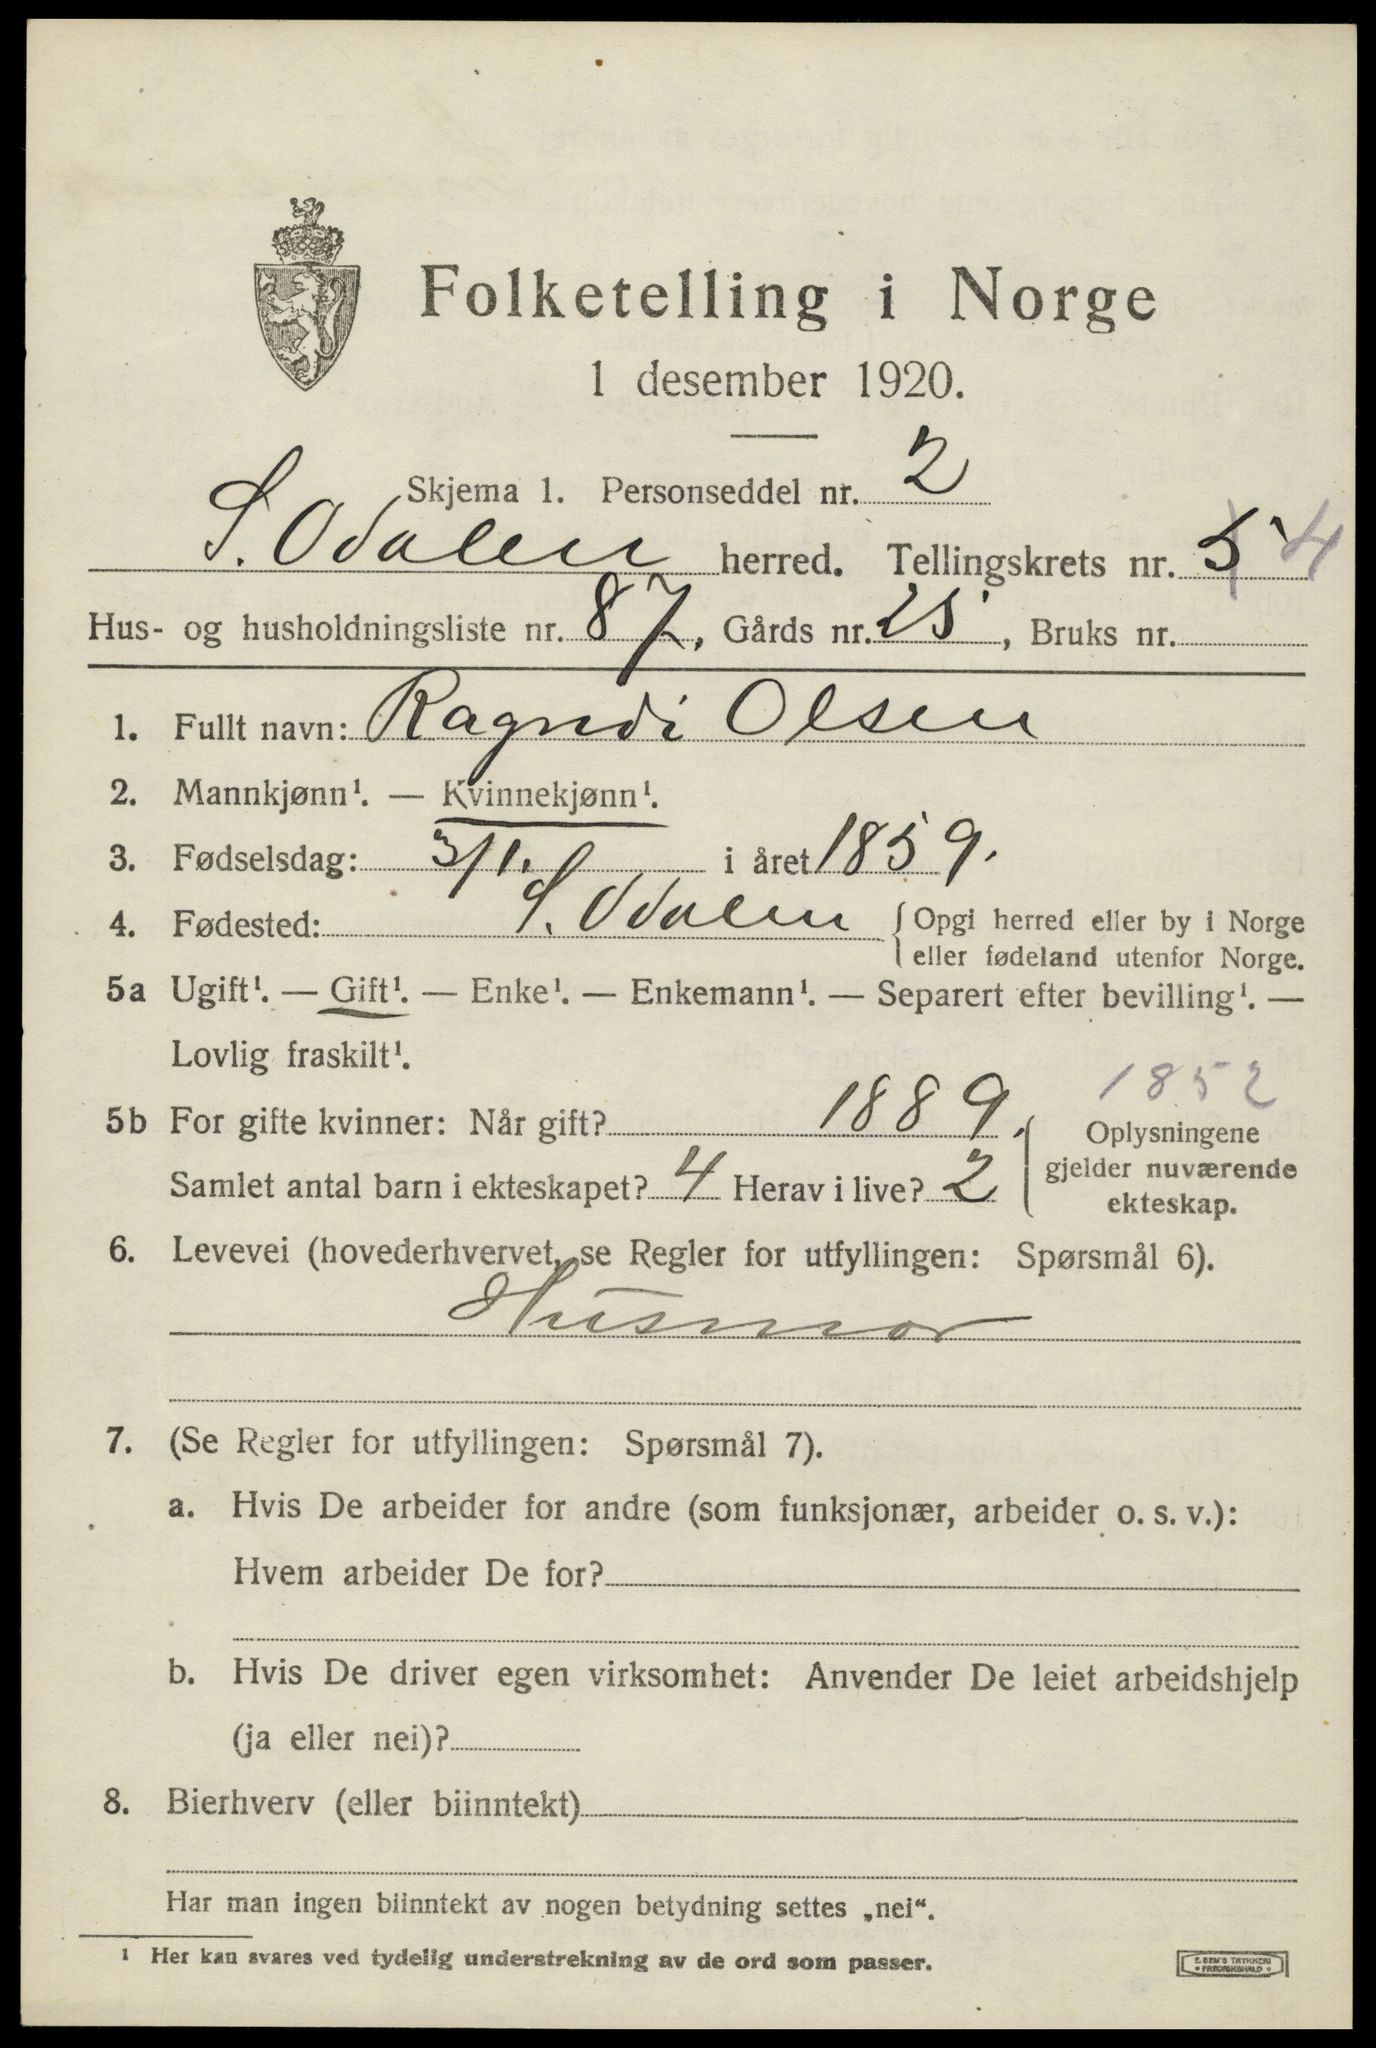 Folketelling i Norge
1 desember 1920.
Skjema 1. Personseddel nr. 2
S. Odalen herred. Tellingskrets nr. 5 4
Hus- og husholdningsliste nr. 87, Gårds nr. 25, Bruks nr.
1. Fullt navn: Ragndi Olsen
2. Mannkjønn¹. — Kvinnekjønn¹.
3. Fødselsdag: 3/1. i året 1859.
4. Fødested: S. Odalen { Opgi herred eller by i Norge
eller fødeland utenfor Norge.
5a Ugift¹. — Gift¹. — Enke¹. — Enkemann¹. — Separert efter bevilling¹. —
Lovlig fraskilt¹.
1852
5b For gifte kvinner: Når gift? 1889. Oplysningene
Samlet antal barn i ekteskapet? 4 Herav i live? 2 gjelder nuværende
ekteskap.
6. Levevei (hovederhvervet, se Regler for utfyllingen: Spørsmål 6).
Husmor
7. (Se Regler for utfyllingen: Spørsmål 7).
a. Hvis De arbeider for andre (som funksjonær, arbeider o. s. v.):
Hvem arbeider De for?
b. Hvis De driver egen virksomhet: Anvender De leiet arbeidshjelp
(ja eller nei)?
8. Bierhverv (eller biinntekt)
Har man ingen biinntekt av nogen betydning settes „nei“.
¹ Her kan svares ved tydelig understrekning av de ord som passer.
E. SEM'S TRYKKERI
• FREDRIKSHALD •